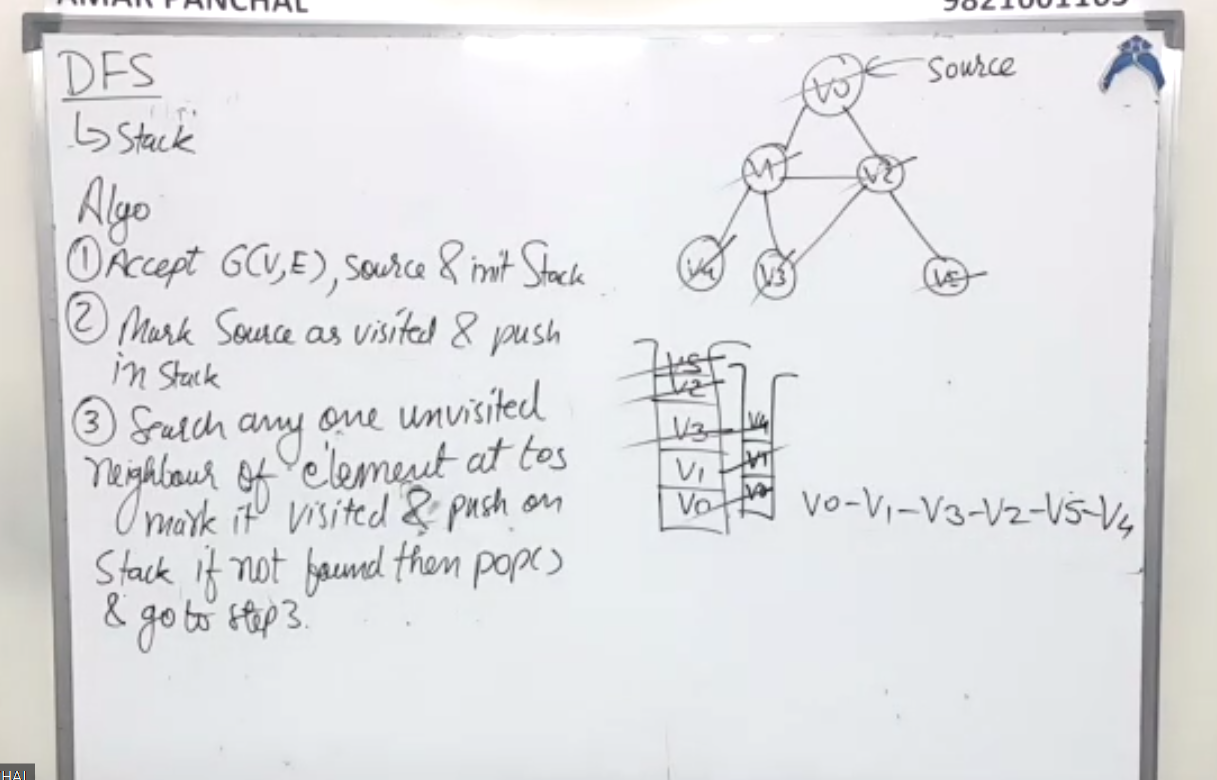 AMAR PANCHAL
9821601163
DFS
↳ Stack
Algo
① Accept G(V,E), Source & init Stack
② Mark Source as visited & push
in Stack
③ Search any one unvisited
neighbour of element at tos
mark it visited & push on
Stack if not found then pop()
& go to step 3.
V0 ← Source
V1 V2
V4 V3 V5
V5
V2
V3
V1
V0
V4
V1
V0
V0-V1-V3-V2-V5-V4
HAL